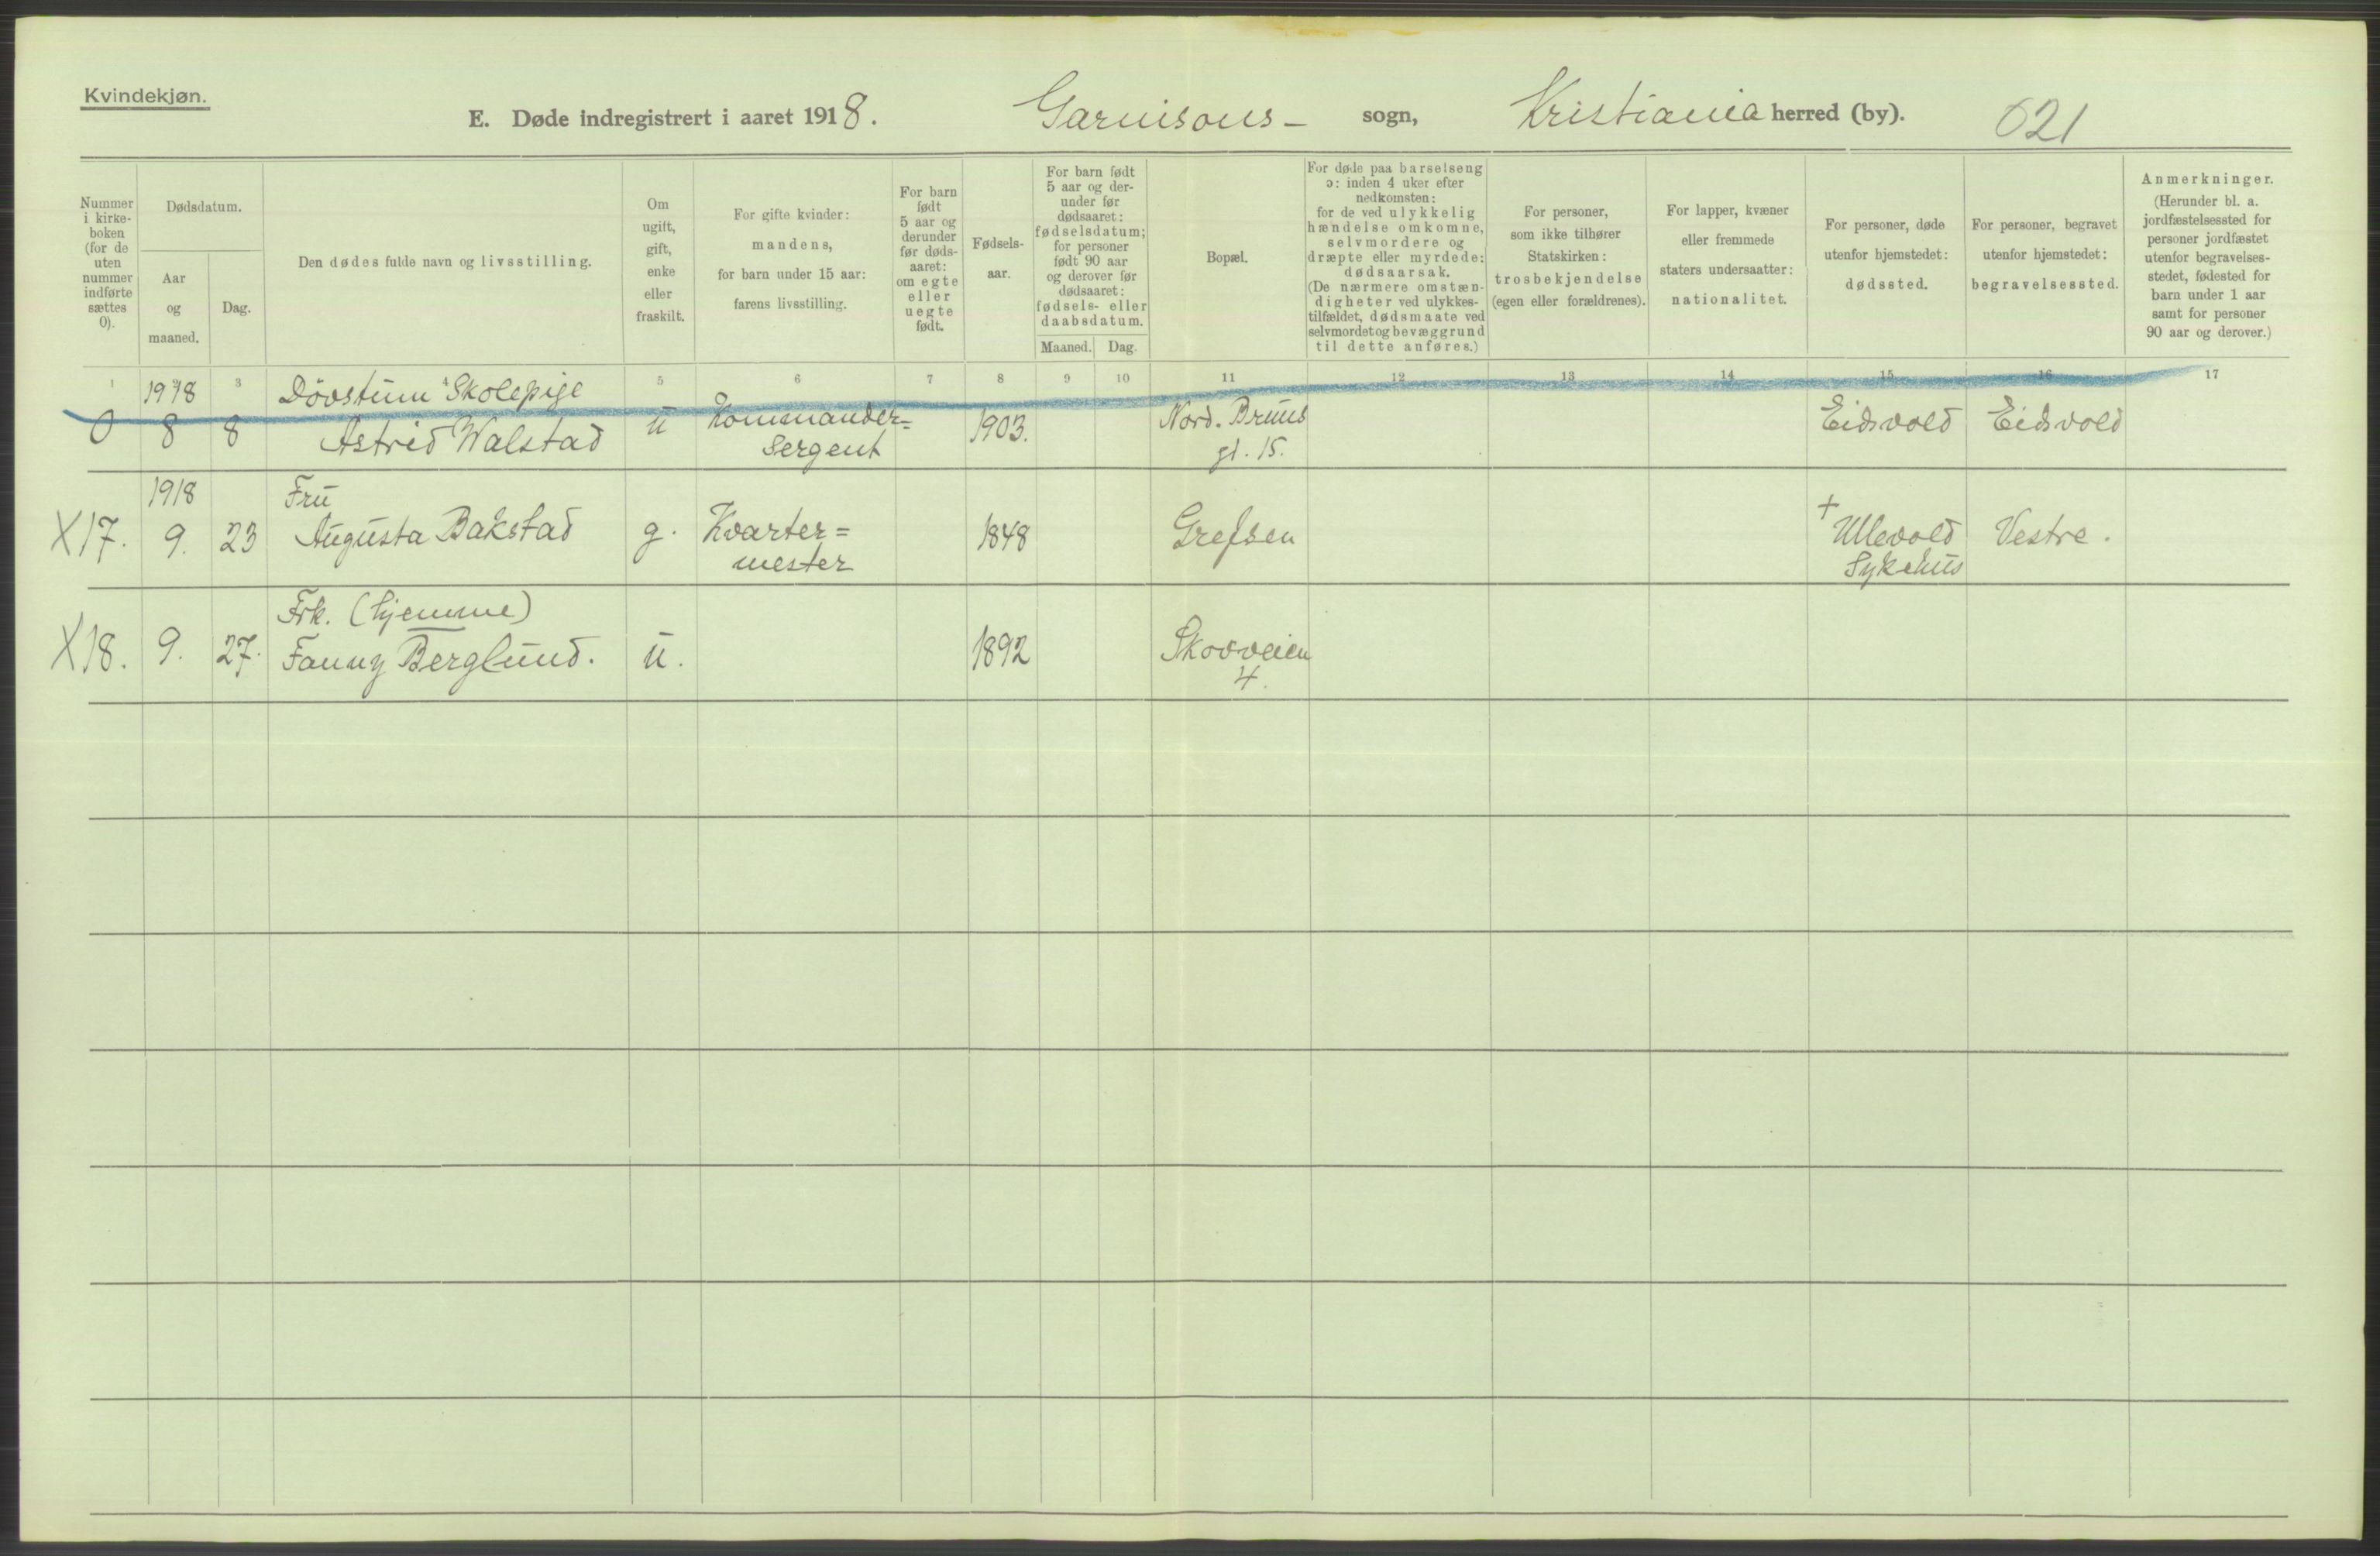 Kvindekjøn.
E. Døde indregistrert i aaret 1918. Garnisons- sogn, Kristiania herred (by). 621
Nummer i kirke-boken (for de uten nummer indførte sættes 0).
Dødsdatum.
Aar og maaned.
Dag.
Den dødes fulde navn og livsstilling.
Om ugift, gift, enke eller fraskilt.
For gifte kvinder: mandens, for barn under 15 aar: farens livsstilling.
For barn født 5 aar og derunder før døds-aaret: om egte eller uegte født.
Fødsels-aar.
For barn født 5 aar og der-under før dødsaaret: fødselsdatum; for personer født 90 aar og derover før dødsaaret: fødsels- eller daabsdatum.
Maaned. Dag.
Bopæl.
For døde paa barselseng ɔ: inden 4 uker efter nedkomsten: for de ved ulykkelig hændelse omkomne, selvmordere og dræpte eller myrdede: dødsaarsak. (De nærmere omstæn-digheter ved ulykkes-tilfældet, dødsmaate ved selvmordet og bevæggrund til dette anføres.)
For personer, som ikke tilhører Statskirken: trosbekjendelse (egen eller forældrenes).
For lapper, kvæner eller fremmede staters undersaatter: nationalitet.
For personer, døde utenfor hjemstedet: dødssted.
For personer, begravet utenfor hjemstedet: begravelsessted.
Anmerkninger. (Herunder bl. a. jordfæstelsessted for personer jordfæstet utenfor begravelses-stedet, fødested for barn under 1 aar samt for personer 90 aar og derover.)
1 3 4 5 6 7 8 9 10 11 12 13 14 15 16 17
1918 Døvstum Skolepige
0 8 8 Astrid Walstad u Kommander= 1903. Nord. Bruns Eidsvold Eidsvold
Sergent gt. 15.
1918 Fru
X17. 9. 23 Augusta Bakstad g. Kvarter= 1848 Grefsen + Ullevold Vestre.
mester Sykehus
Frk. (hjemme)
X18. 9. 27. Fanny Berglund. u. 1892 Skovveien
4.